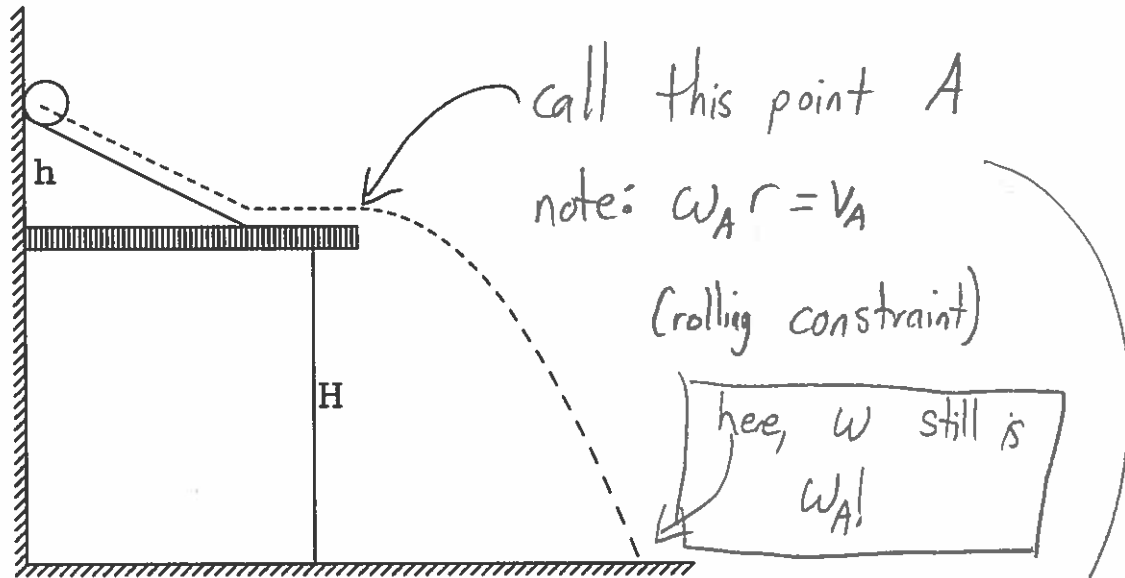 call this point A
h
note: ω_A r = v_A
(rolling constraint)
H
here, ω still is
ω_A!